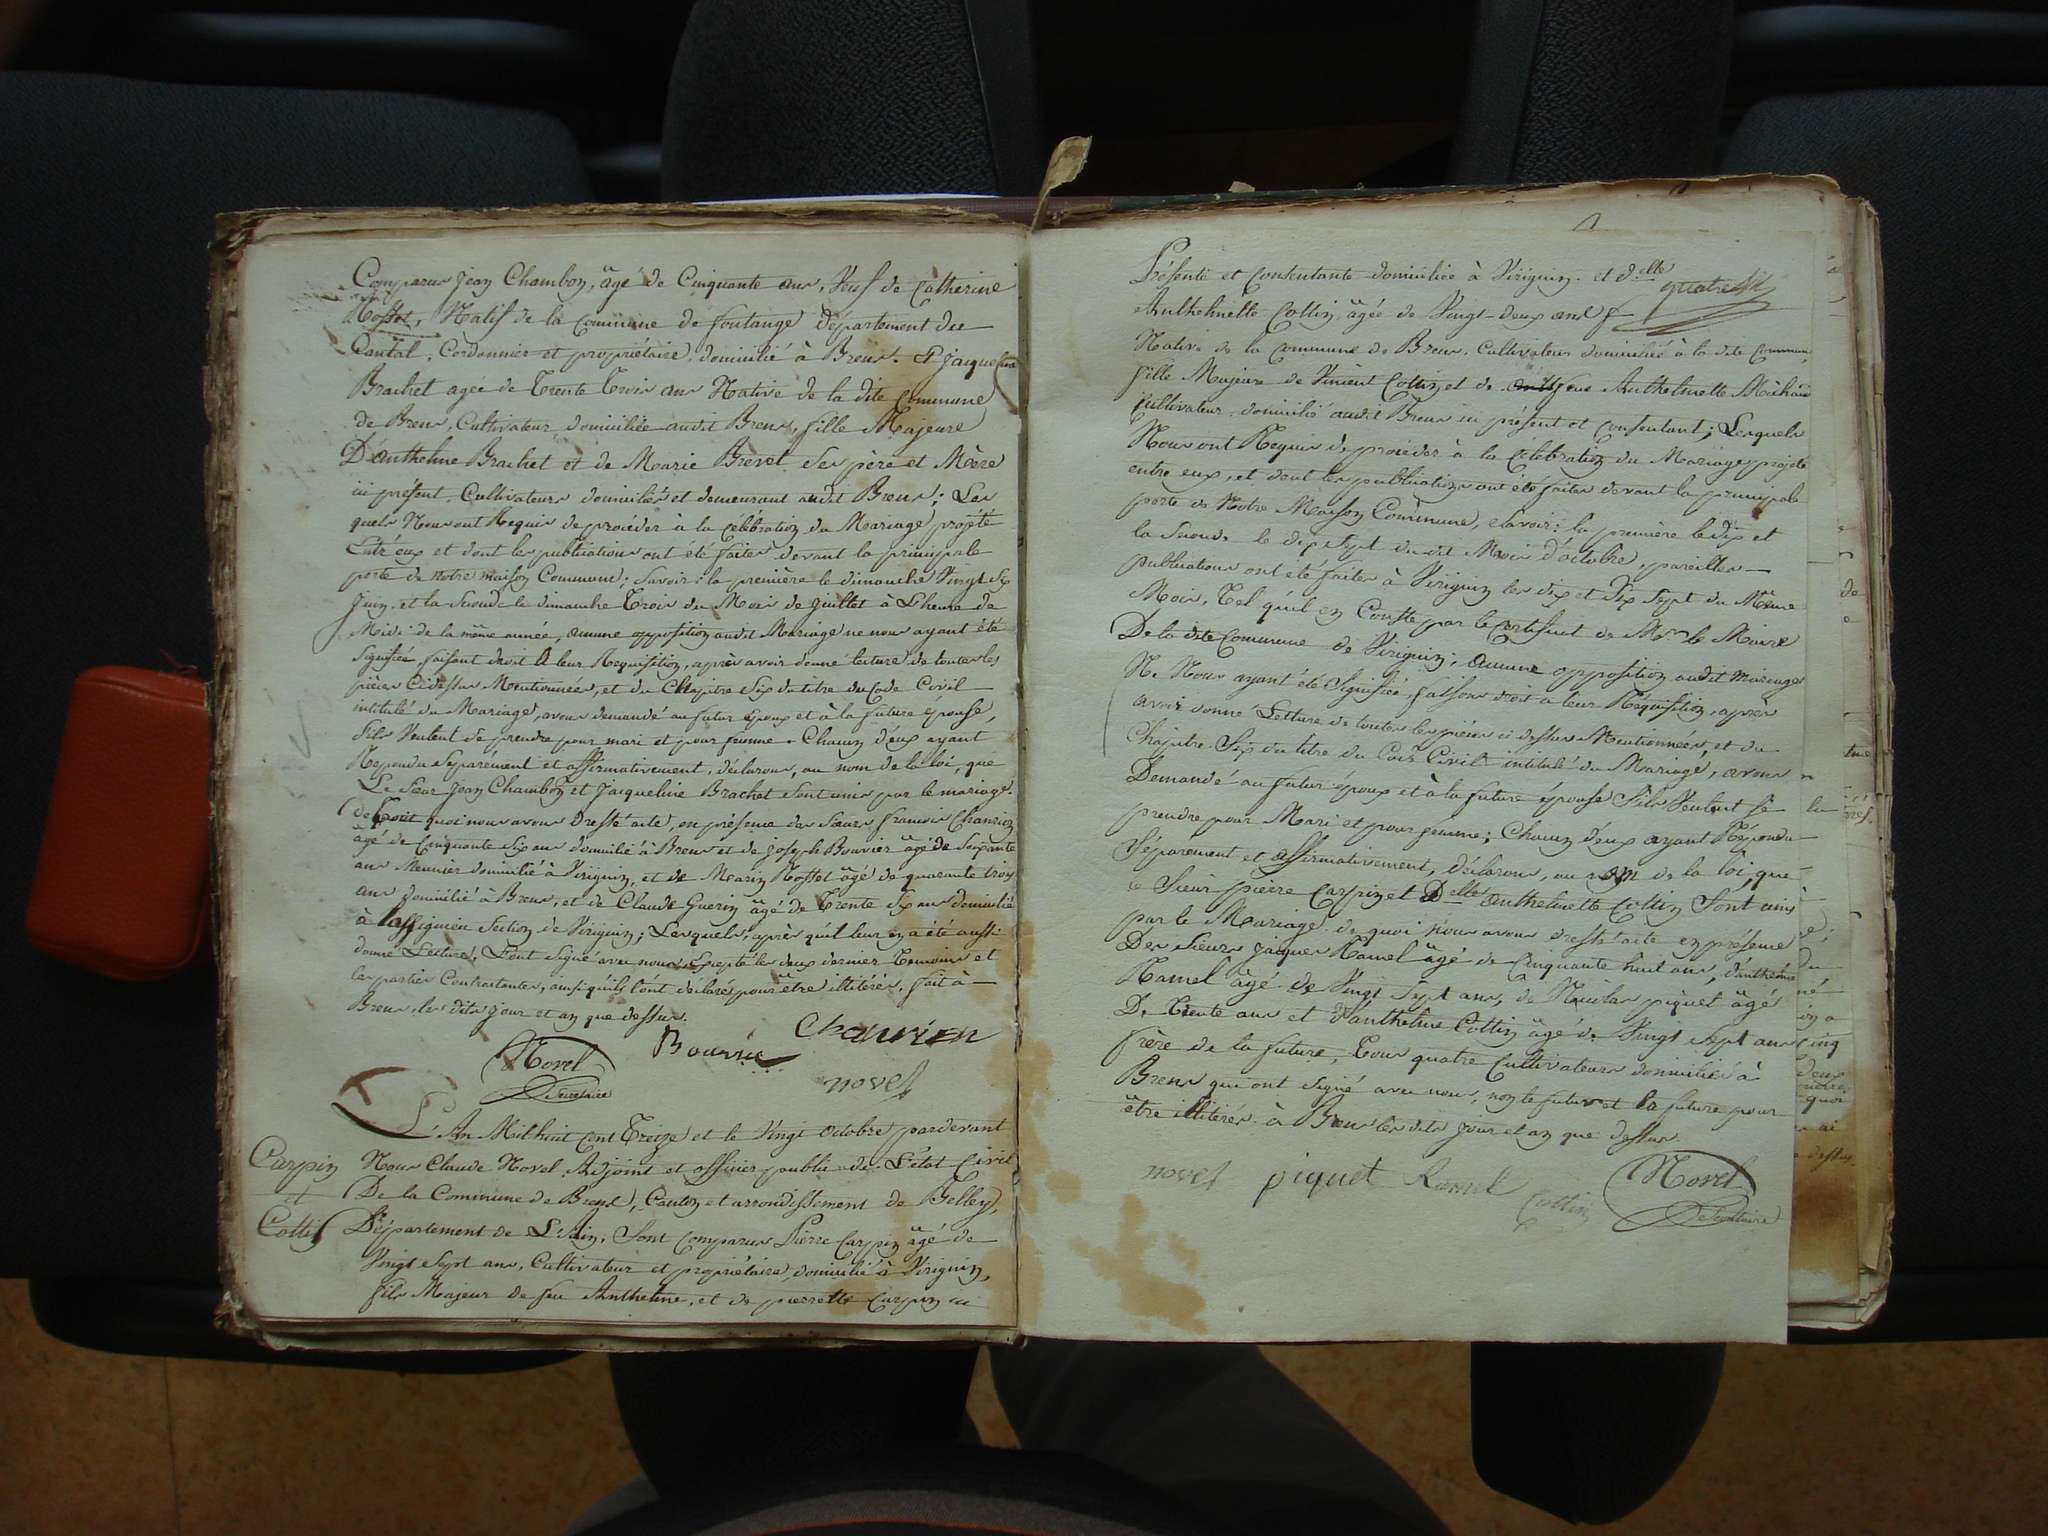 Comparus Jean Chambon, âgé de Cinquante ans, Veuf de Catherine
Rosset, Natif de la Commune de foutange département du
Cantal, Cordonnier et propriétaire, domicilié à Brens. Et jaqueline
Brachet agée de Trente Trois ans Native de la dite Commune
de Brens, Cultivateur domiciliée audit Brens, fille Majeure
D'anthelme Brachet et de Marie Brevet ses père et Mère
ici présent Cultivateurs domiciliés et demeurant audit Brens; Les
quels Nous ont Requis de procéder à la Célébration du Mariage projété
Entr'eux et dont les publications ont été faites devant la principale
porte de notre maison Commune; Savoir: la première le dimanche Vingt Six
Juin et la Seconde le dimanche Trois du Mois de Juillet à L'heure de
Midi de la même année, aucune opposition audit Mariage ne nous ayant été
Signifiée, faisant droit à leur Requisition, après avoir donné lecture de toutes les
pièces Cidessus Mentionnées, et du Chapitre Six du titre du Code Civil
intitulé du Mariage, avons demandé au futur époux et à la future épouse,
Sils Veulent se prendre pour mari et pour femme. Chacun d'eux ayant
Repondu Séparément et affirmativement, déclarons, au nom de la loi, que
Le Sieur Jean Chambon et Jacqueline Brachet Sont unis par le mariage.
de tout quoi nous avons Dressé acte, en présence des Sieurs francois Chanrion
âgé de Cinquante Six ans domicilié à Brens et de joseph Bouvier âgé de Soixante
ans Meunier domicilié à Virignin, et de Marin Rosset âgé de quarante trois
ans domicilié à Brens, et de Claude Guerin âgé de Trente Six ans domicilié
à Lassignieu Section de Virignin; Lesquels, après qu'il leur en a été aussi
donné Lecture, L'ont Signé avec nous, Excepté les deux dernier Temoins et
les parties Contractantes, ainsi qu'ils l'ont declarés pour être illitérés. fait à
Brens, les dits jour et an que dessus.
Chanrion
Bouvier
Novel
Secretaire
novel
L'An Mil huit Cent Treize et le Vingt Octobre pardevant
Carpin
et
Cottin
Nous Claude Novel Adjoint et officier public de L'état Civil
De la Commune de Brens, Canton et arrondissement de Belley,
Département de L'Ain, Sont Comparus Pierre Carpin âgé de
Vingt Sept ans, Cultivateur et propriétaire, domicilié à Virignin,
fils Majeur de feu Anthelme, et de pierrette Carpin ici
Présente et Consentante domiciliée à Virignin. et d.elle
Anthelmette Cottin, âgée de Vingt-deux ans
Native de la Commune de Brens, Cultivateur domiciliée à la dite Commune
fille Majeure de Vincent Cottin et de feue Anthelmette Michaud
Cultivateur domicilié audit Brens ici présent et Consentant; Lesquels
Nous ont Requis de procéder à la Célébration du Mariage projeté
entre eux, et dont les publications ont été faites devant la principale
porte de Notre Maison Commune, Savoir: la première le dix et
la Seconde le dix Sept du dit Mois d'octobre, pareilles
publications ont été faites à Virignin les dix et Dix Sept du Même
Mois, Tel qu'il en Conste par le Certificat de Mr. le Maire
De la dite Commune de Virignin; Aucune opposition audit mariage
Ne Nous ayant été Signifiée, faisons droit à leur Requisition, après
avoir donné Lecture de toutes les pièces ci dessus Mentionnées, et du
Chapitre Six du titre du Code Civil intitulé du Mariage, avons
Demandé au futur époux et à la future épouse Sils Veulent Se
prendre pour Mari et pour femme; Chacun d'eux ayant Répondu
Séparement et affirmativement, Déclarons, au nom de la loi, que
le Sieur pierre Carpin et Delle anthelmette Cottin Sont unis
par le Mariage. de quoi nous avons dressé acte en présence
Des Sieurs jaques Ramel âgé de Cinquante huit ans, d'anthelme
Ramel âgé de Vingt Sept ans, de Nicolas piquet âgé
De Trente ans et d'anthelme Cottin âgé de Vingt Sept ans
frère de la future, Tous quatre Cultivateurs domiciliés à
Brens qui ont Signé avec nous, non le futur et la future pour
être illitérés. à Brens les dits jour et an que dessus.
novel piquet Ramel Cottin
Novel
Secretaire